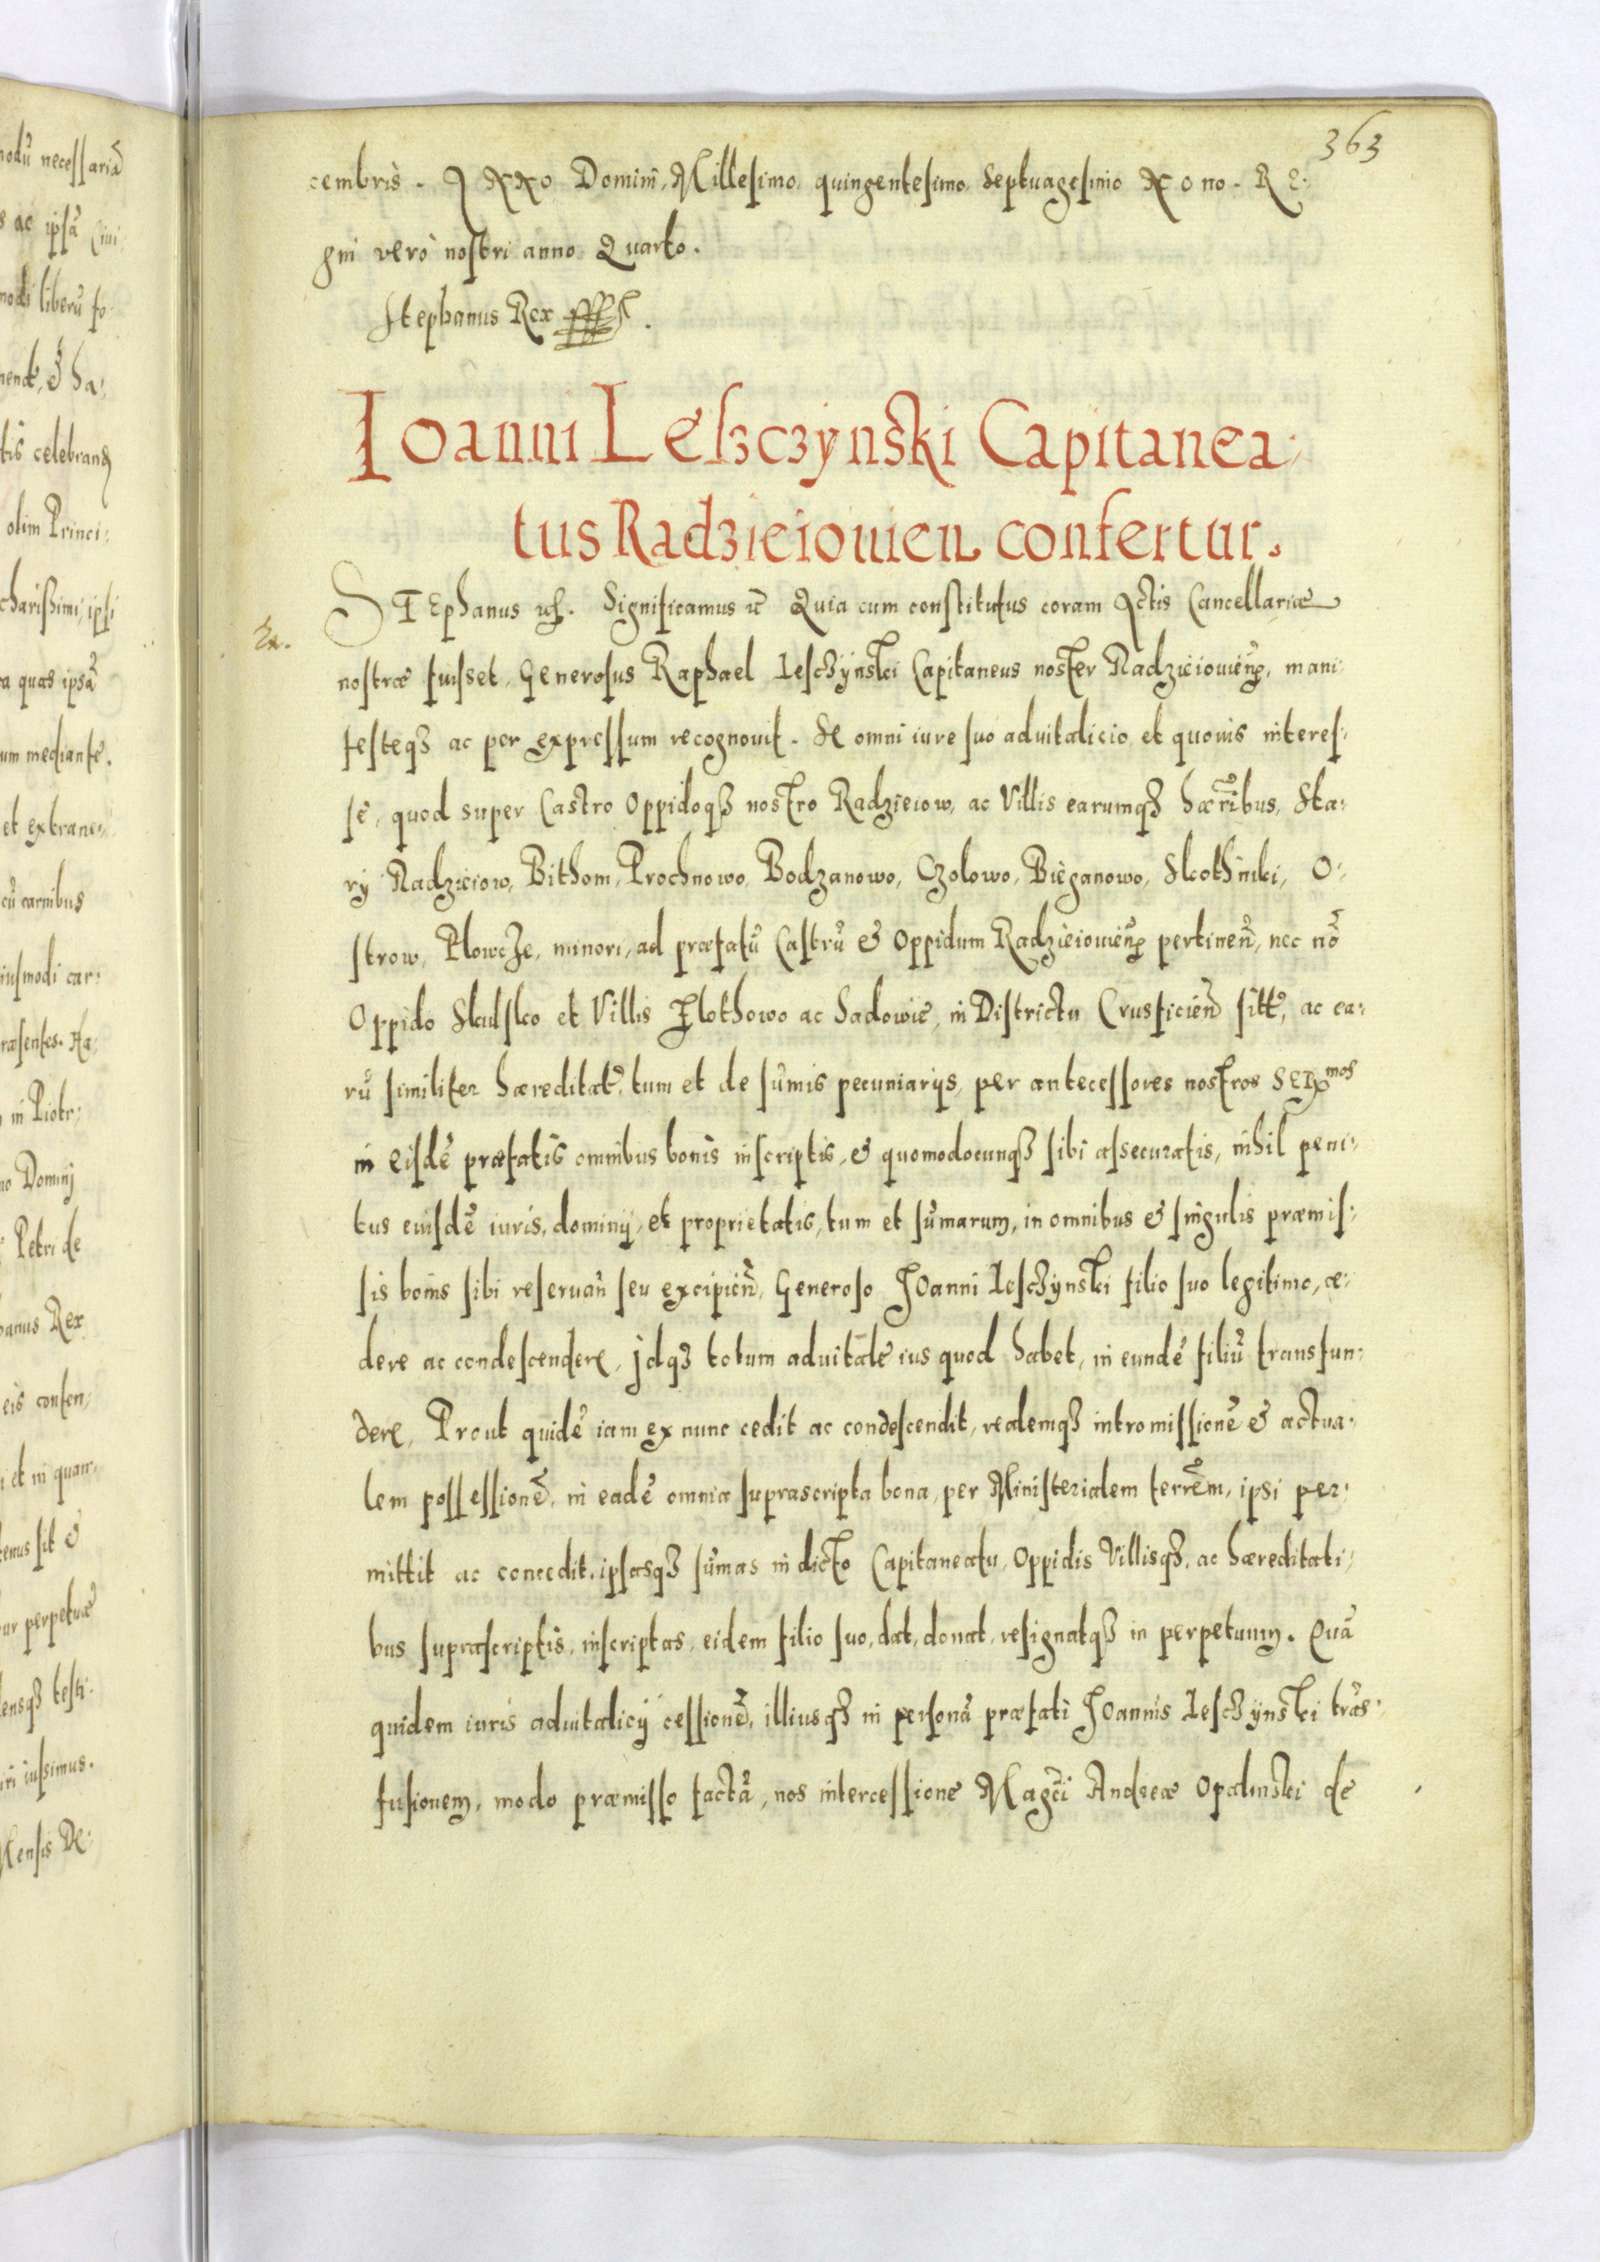 363
cembris. Anno Domini, Millesimo, quingentesimo, Septuagesimo Nono. Re:
gni verò nostri anno Quarto.
Stephanus Rex
Ioanni Leszczynski Capitanea:
tus Radzieiouien confertur.
STEphanus Significamus Quia cum constitutus coram Actis Cancellariæ
nostræ fuisset, Generosus Raphael Lesczynski Capitaneus noster Radzieiouien, mani:
festeq3 ac per expressum recognouit. Se omni iure suo aduitalicio et quouis interes:
se, quod super Castro Oppidoq3 nostro Radzieiow, ac Villis earumq3 hæribus, Sta:
ry Radzieiow, Bithom, Prochnowo, Bodzanowo, Czolowo, Bieganowo, Skothniki, O:
strow, Plowcze, minori, ad præfatū Castrū & Oppidum Radzieiouien pertinen, nec nō
Oppido Skulsko et Villis Flothowo ac Sadowie, in Districtu Crusficien sitt, ac ea:
rū similiter hæreditat, tum et de sūmis pecuniarijs, per antecessores nostros Sermos
in eisdē præfatis omnibus bonis inscriptis, & quomodocunq3 sibi assecuratis, nihil peni:
tus euisdē iuris, dominij, et proprietatis, tum et sūmarum, in omnibus & singulis præmis:
sis bonis sibi reseruan seu excipien, Generoso Joanni Lesczynski filio suo legitimo, ce:
dere ac condescendere, jdq3 totum aduitale ius quod habet, in eundē filiū transfun:
dere, Prout quidē iam ex nunc cedit ac condescendit, realemq3 intromissionē & actua:
lem possessionē, in eadē omnia suprascripta bona, per Ministerialem terrēm, ipsi per:
mittit ac concedit, ipsasq3 sūmas in dicto Capitaneatu, Oppidis Villisq3, ac hæreditati:
bus suprascriptis, inscriptas, eidem filio suo, dat, donat, resignatq3 in perpetuum. Quā
quidem iuris aduitalicij cessionē, illiusq3 in personā præfati Joannis Lesczynski trās:
fusionem, modo præmisso factā, nos intercessione Magci Andreæ Opalinski de